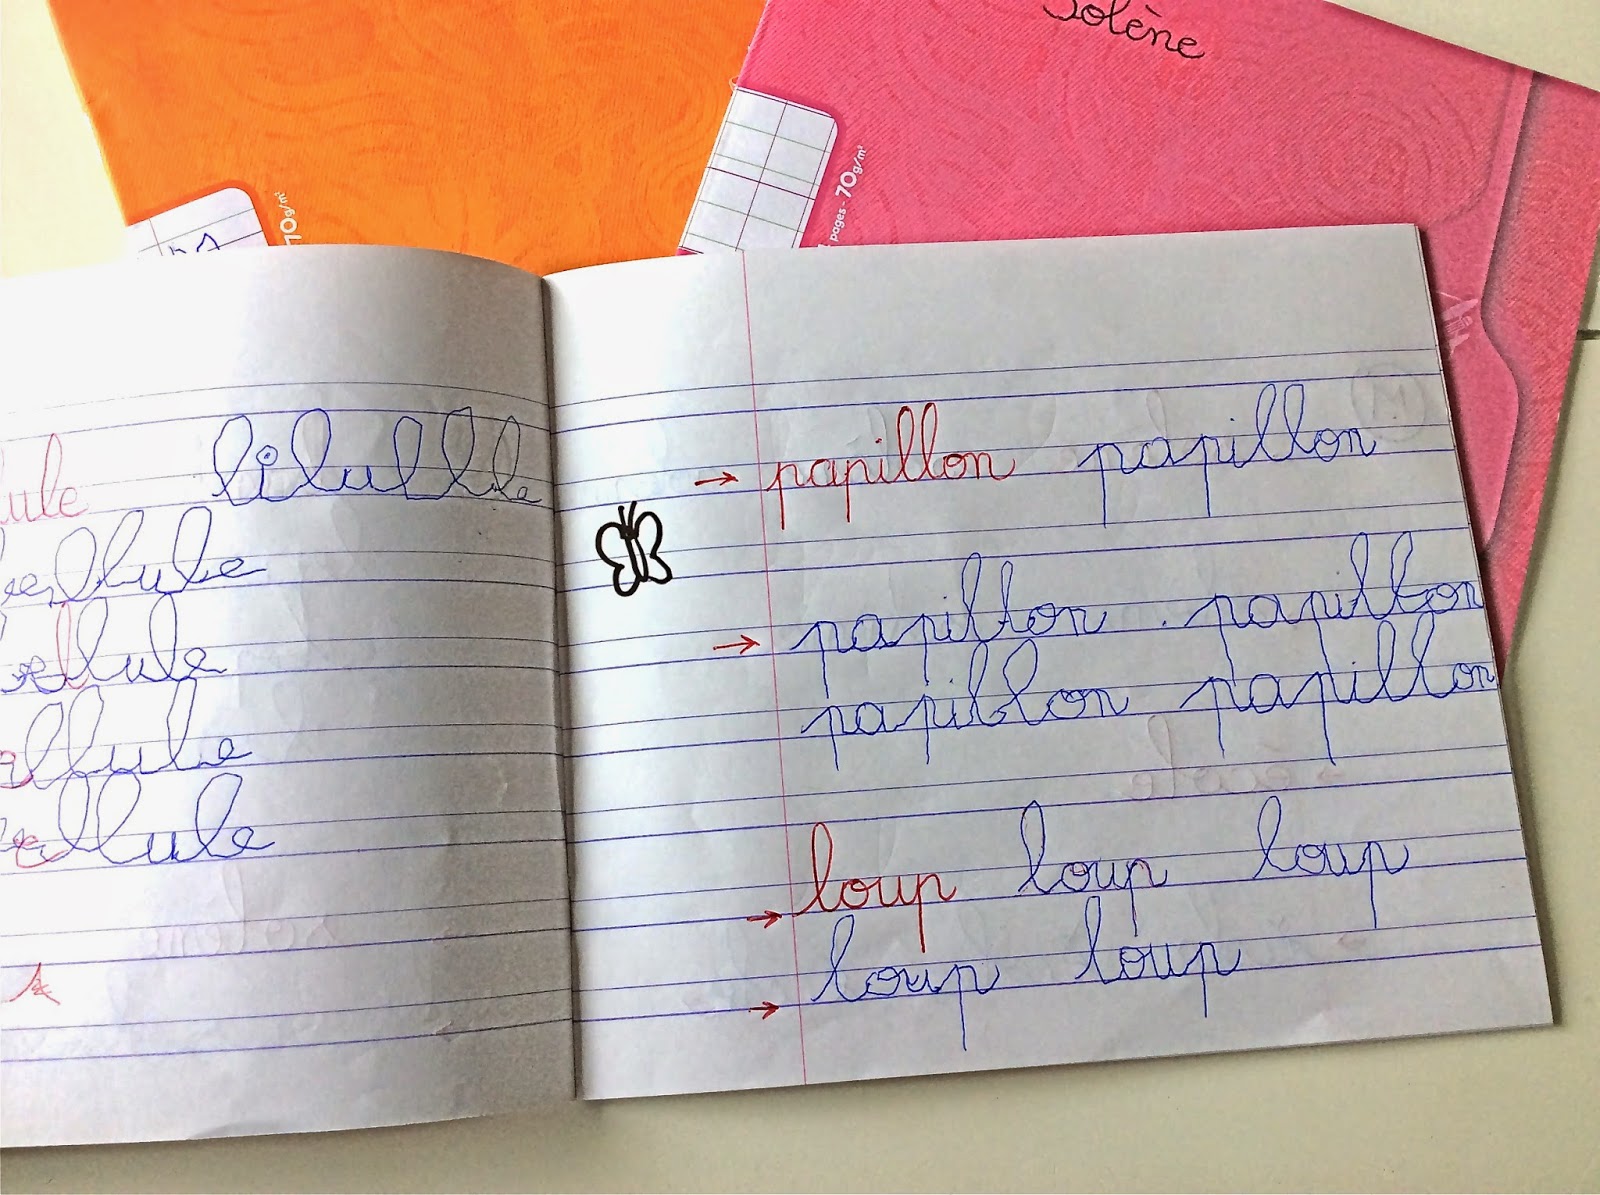 Solène
pages - 70g/m²
70g/m²
lule lilullle
ellule
ellule
ellule
papillon papillon
papillon . papillon
papillon papillon
loup loup loup
loup loup